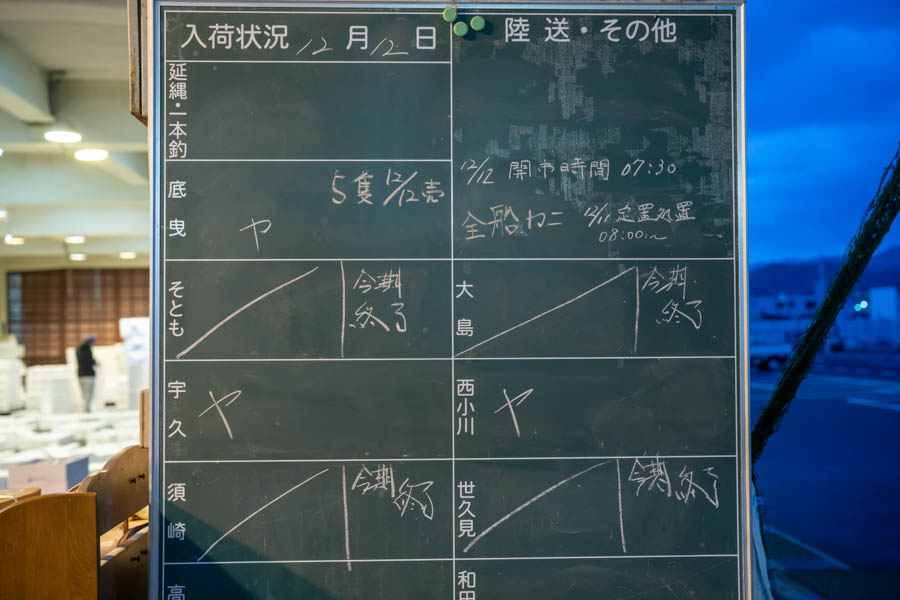 入荷状況 12月12日
陸送・その他
延縄・一本釣
12/12 開市時間 07:30
底曳
5隻 12/12売
ヤ
全船カニ
12/11 定置処置
08:00〜
そとも
今期
終了
大島
今期
終了
宇久
ヤ
西小川
ヤ
須崎
今期
終了
世久見
今期
終了
高
和田